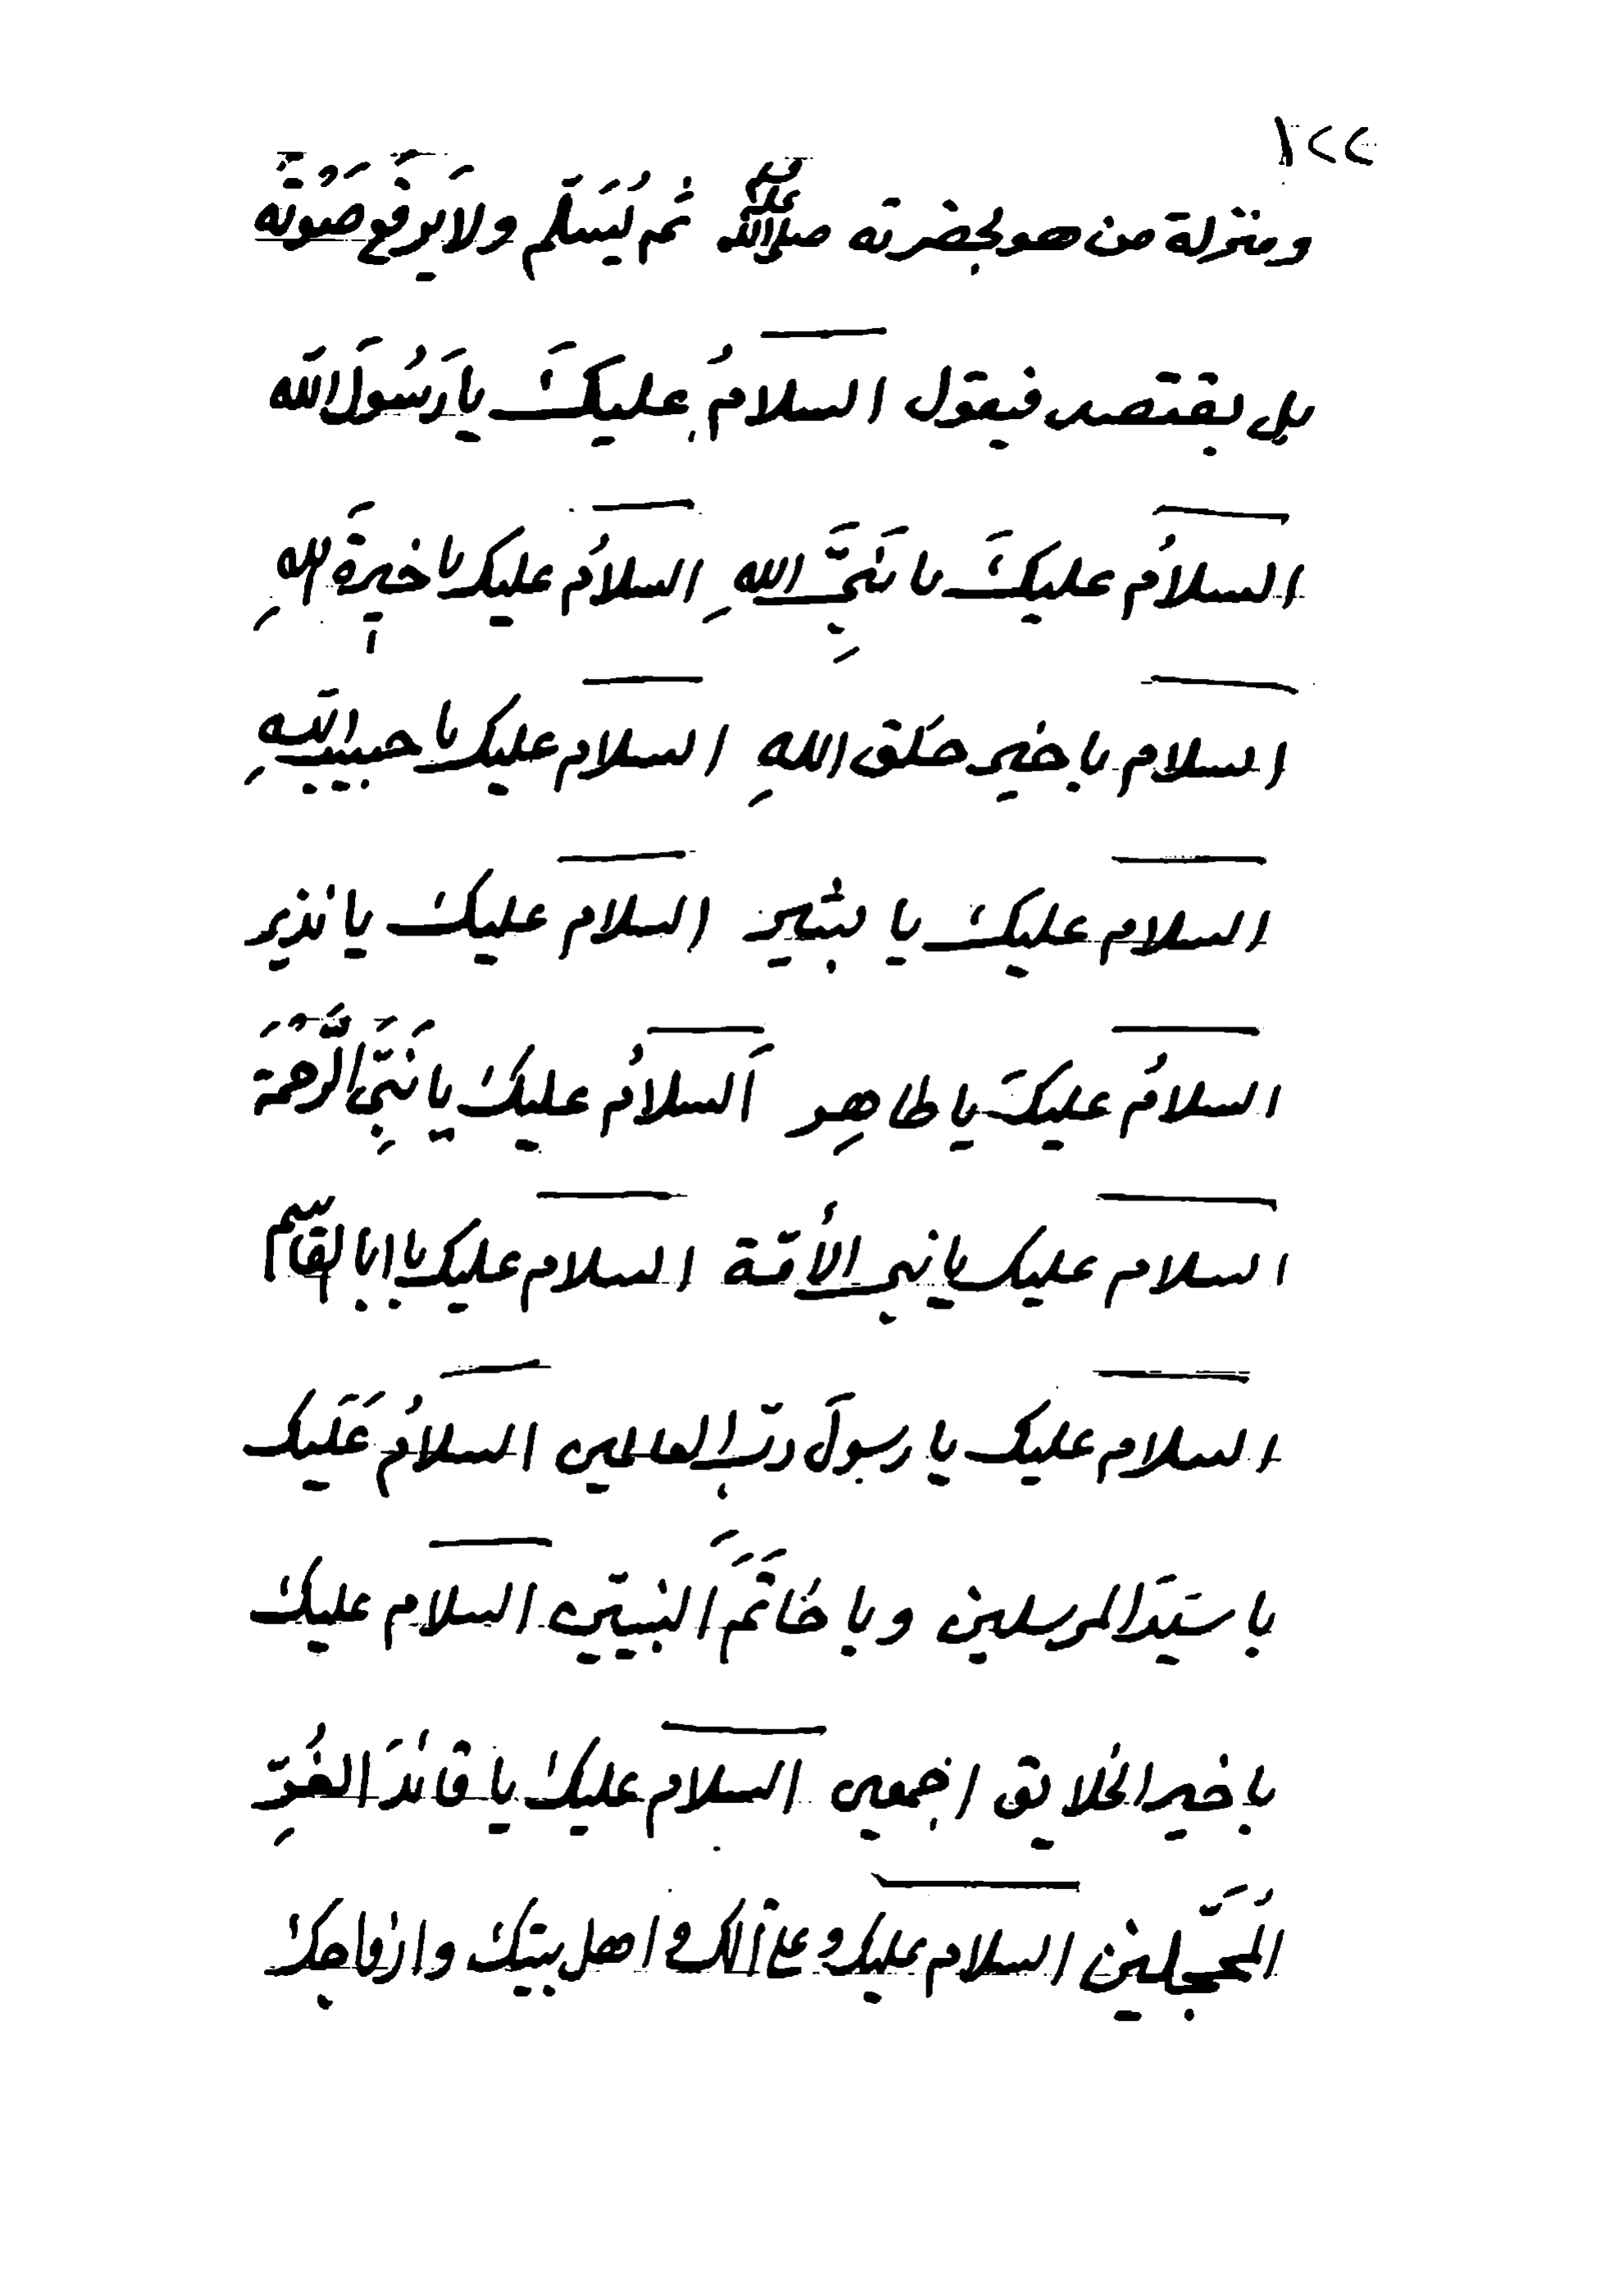 ١٢٢
ومنزلة من هو بحضرته صلى الله عليه وسلم ثم يُسَلّم ولا يَرفَع صَوْتَه
بل يقتصد فيقول السلامُ عليكَ يا رَسُولَ الله
السلامُ عليكَ يا نَبِيَّ اللهِ السلامُ عليك يا خيرةَ اللهِ
السلام يا خير خلق اللهِ السلام عليك يا حبيب اللهِ
السلام عليك يا بشير السلام عليك يا نذير
السلامُ عليكَ يا طاهِر اَلسلامُ عليك يا نَبِيَّ الرَّحْمَةَ
السلام عليك يا نبي الأمّة السلام عليك يا ابا القاسم
السلام عليك يا رسولَ ربّ العالمين السلامُ عَلَيك
يا سيّدَ المرسلين ويا خَاتَمَ النبيّين السلام عليك
يا خير الخلايق اجمعين السلام عليك يا قائدَ الغُرِّ
اَلمُحَجَّلين السلام عليك وعلى آلك و اهل بيتك وازواجك